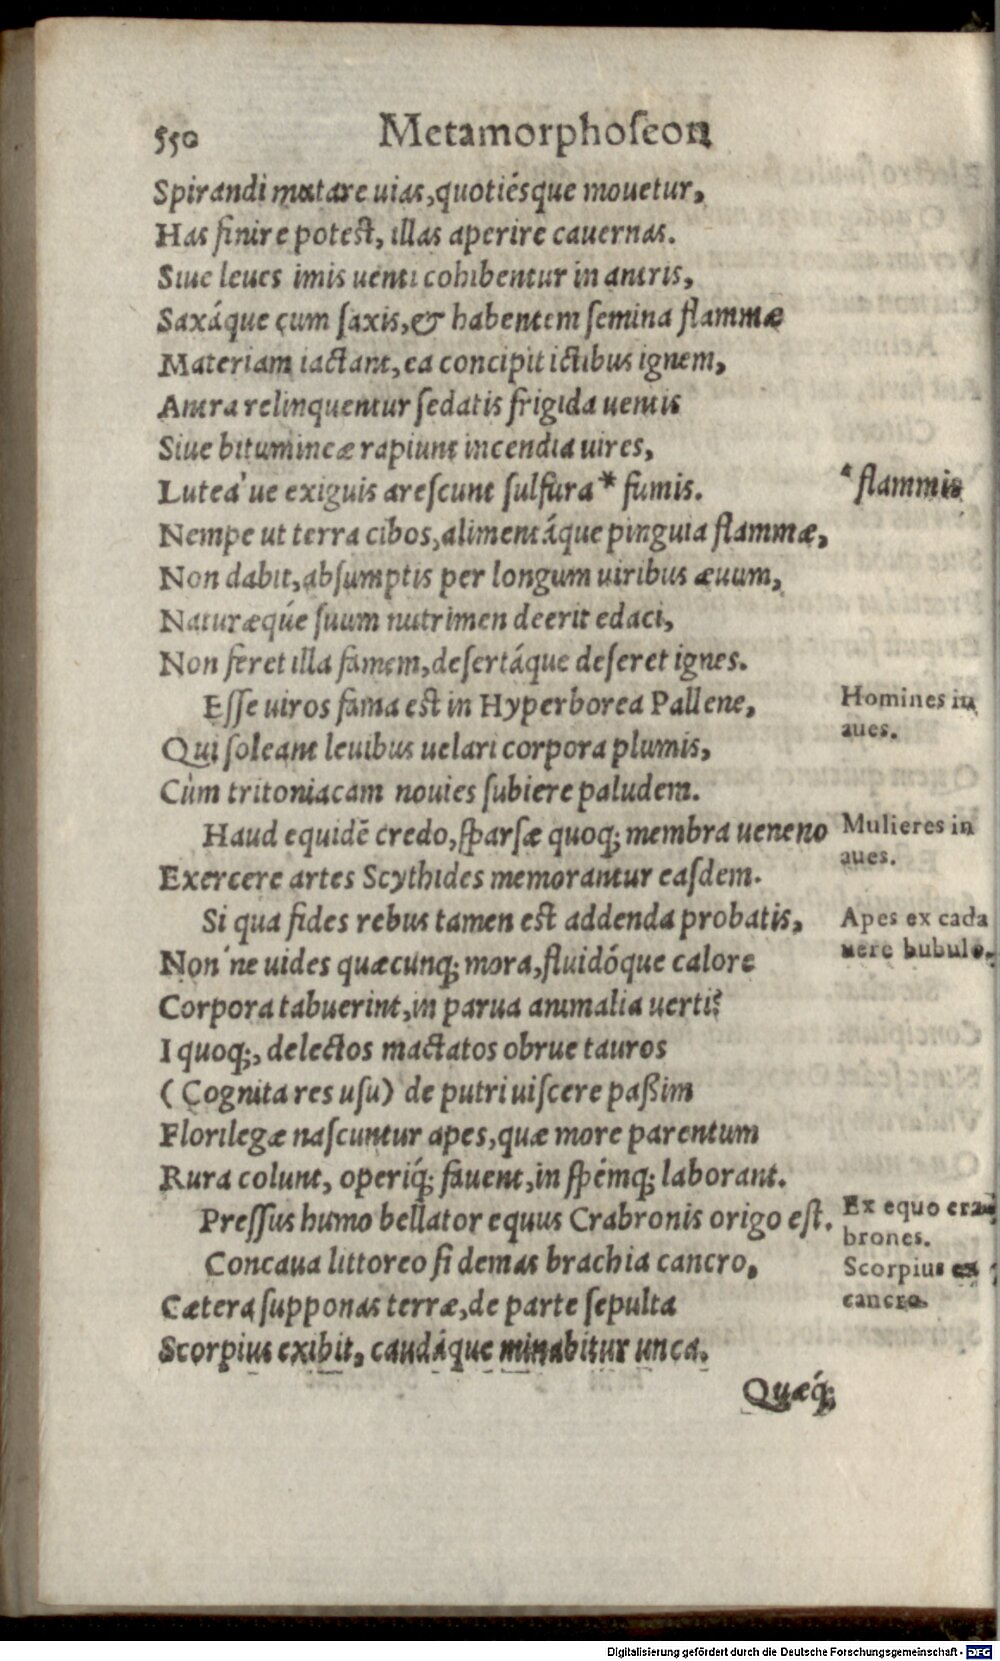 550 Metamorphoſeon
Spirandi mutare uias, quotiésque mouetur,
Has finire poteſt, illas aperire cauernas.
Siue leues imis uenti cohibentur in antris,
Saxáque cum ſaxis, & habentem ſemina flammæ
Materiam iactant, ea concipit ictibus ignem,
Antra relinquentur ſedatis frigida uentis
Siue bitumineæ rapiunt incendia uires,
Lutea'ue exiguis areſcunt ſulfura * fumis.
* flammis
Nempe ut terra cibos, alimentáque pinguia flammæ,
Non dabit, abſumptis per longum uiribus æuum,
Naturæqúe ſuum nutrimen deerit edaci,
Non feret illa famem, deſertáque deſeret ignes.
Eſſe uiros fama eſt in Hyperborea Pallene,
Homines in
aues.
Qui ſoleant leuibus uelari corpora plumis,
Cùm tritoniacam nouies ſubiere paludem.
Haud equidẽ credo, ſparſæ quoq; membra ueneno
Mulieres in
aues.
Exercere artes Scythides memorantur eaſdem.
Si qua fides rebus tamen eſt addenda probatis,
Apes ex cada
uere bubulo.
Non'ne uides quæcunq; mora, fluidóque calore
Corpora tabuerint, in parua animalia uerti?
I quoq;, delectos mactatos obrue tauros
(Cognita res uſu) de putri uiſcere paßim
Florilegæ naſcuntur apes, quæ more parentum
Rura colunt, operiq́; fauent, in ſpémq; laborant.
Preſſus humo bellator equus Crabronis origo eſt.
Ex equo cra-
brones.
Concaua littoreo ſi demas brachia cancro,
Scorpius ex
cancro.
Cætera ſupponas terræ, de parte ſepulta
Scorpius exibit, caudáque minabitur unca.
Quæq́;
Digitalisierung gefördert durch die Deutsche Forschungsgemeinschaft - DFG